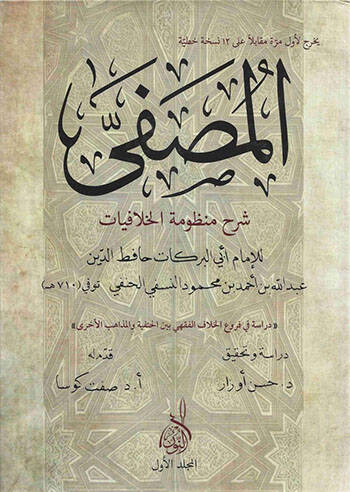 يخرج لأول مرة مقابلاً على ١٢ نسخة خطية
المُصَفَّى
شرح منظومة الخلافيات
للإمام أبي البركات حافظ الدين
عبد الله بن أحمد بن محمود النسفي الحنفي توفي (٧١٠ هـ)
«دراسة في فروع الخلاف الفقهي بين الحنفية والمذاهب الأخرى»
دراسة وتحقيق
د. حسن أوزار
قدم له
أ. د. صفت كوسا
النور
المجلد الأول